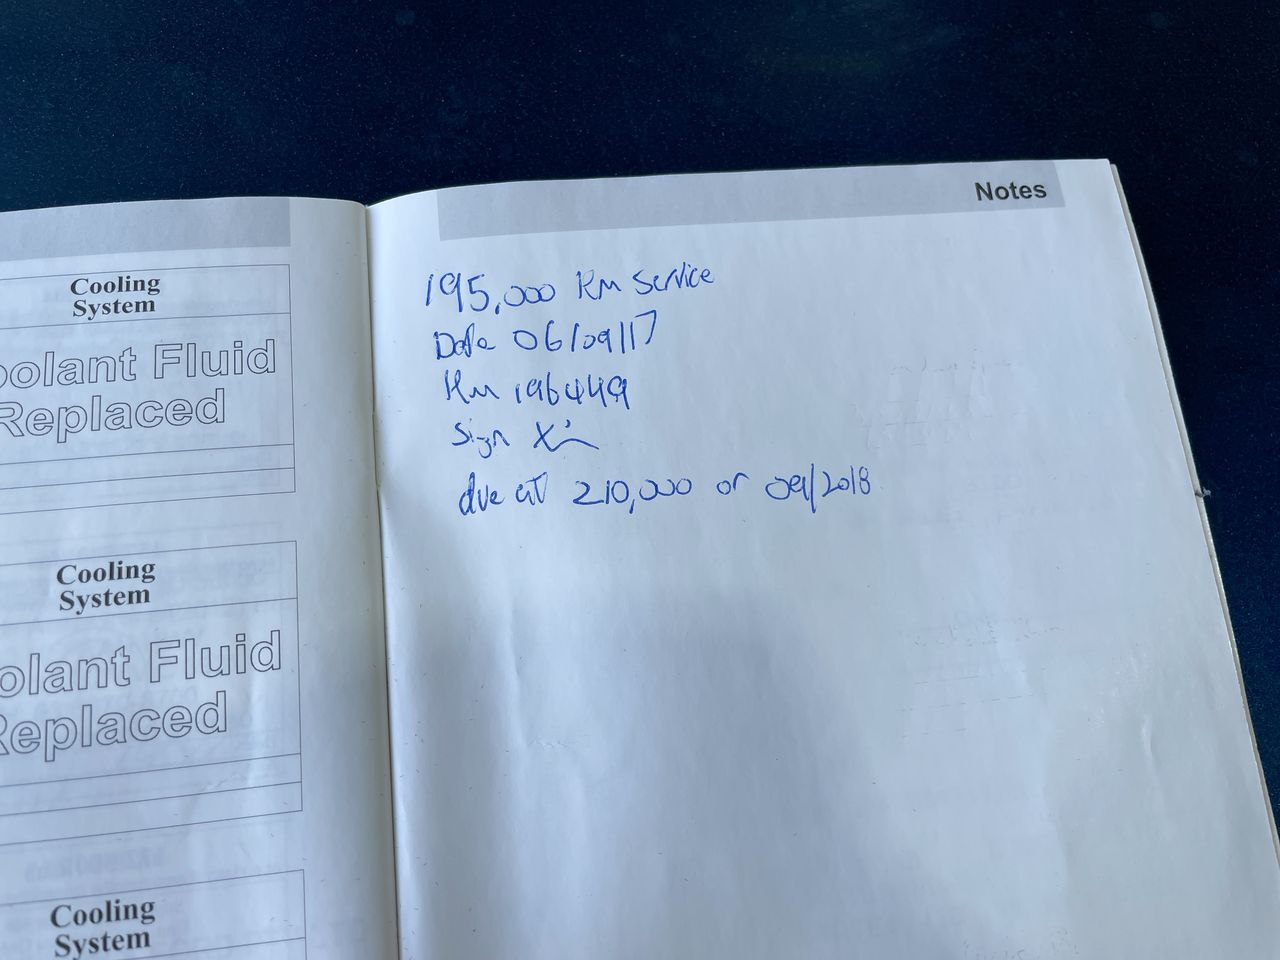 Notes
195,000 Km Service
Date 06/09/17
Km 196449
Sign
due at 210,000 or 09/2018
Cooling
System
oolant Fluid
Replaced
Cooling
System
olant Fluid
Replaced
Cooling
System